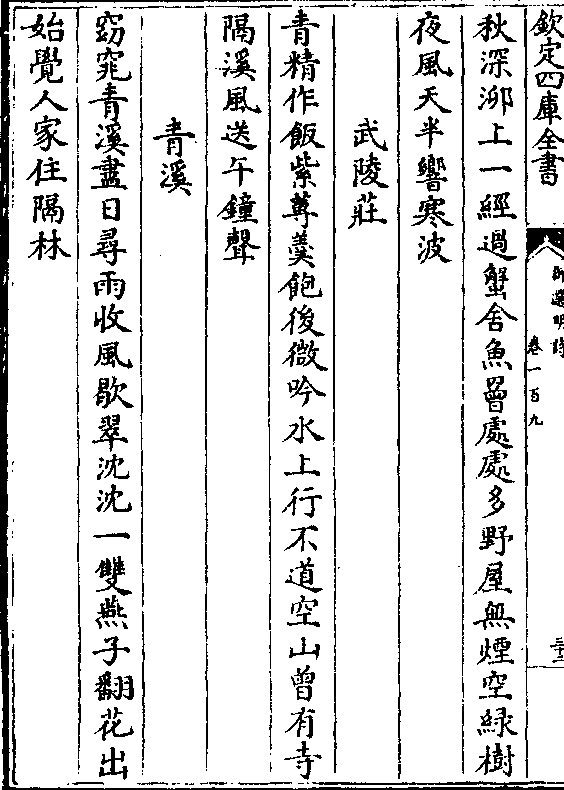 欽定四庫全書
御選明詩
卷一百九
秋深泖上一經過蟹舍魚罾處處多野屋無煙空緑樹
夜風天半響寒波
武陵莊
青精作飯紫蓴羮飽後微吟水上行不道空山曾有寺
隔溪風送午鐘聲
青溪
窈窕青溪盡日尋雨收風歇翠沈沈一雙燕子翻花出
始覺人家住隔林